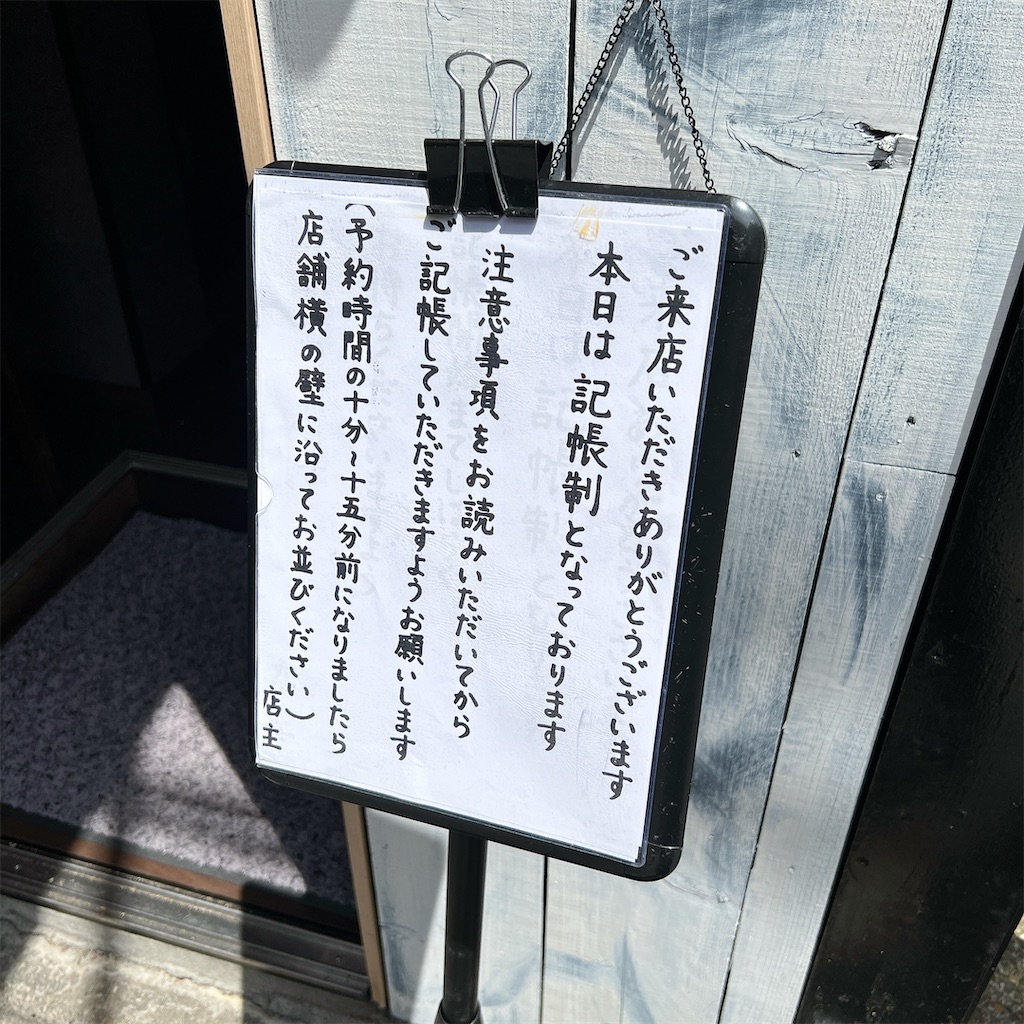 ご来店いただきありがとうございます
本日は記帳制となっております
注意事項をお読みいただいてから
ご記帳していただきますようお願いします
(予約時間の十分〜十五分前になりましたら
店舗横の壁に沿ってお並びください)
店主